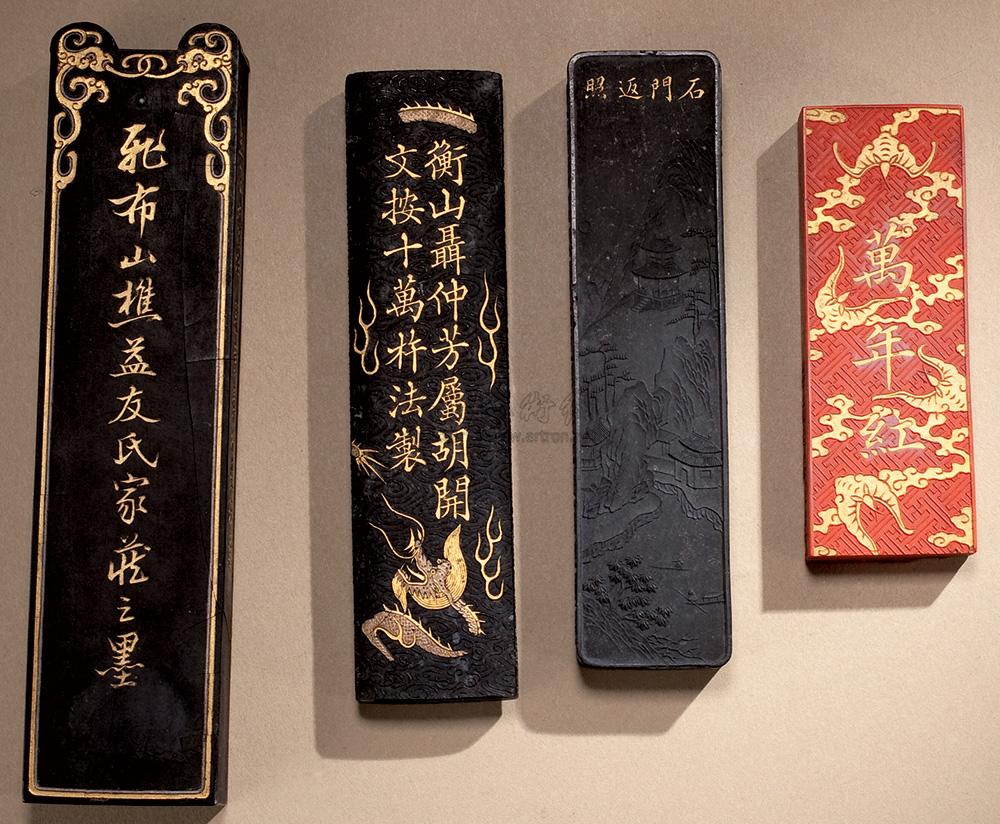 飛布山樵益友氏家藏之墨
衡山聶仲芳屬胡開
文按十萬杵法製
石門返照
萬年紅